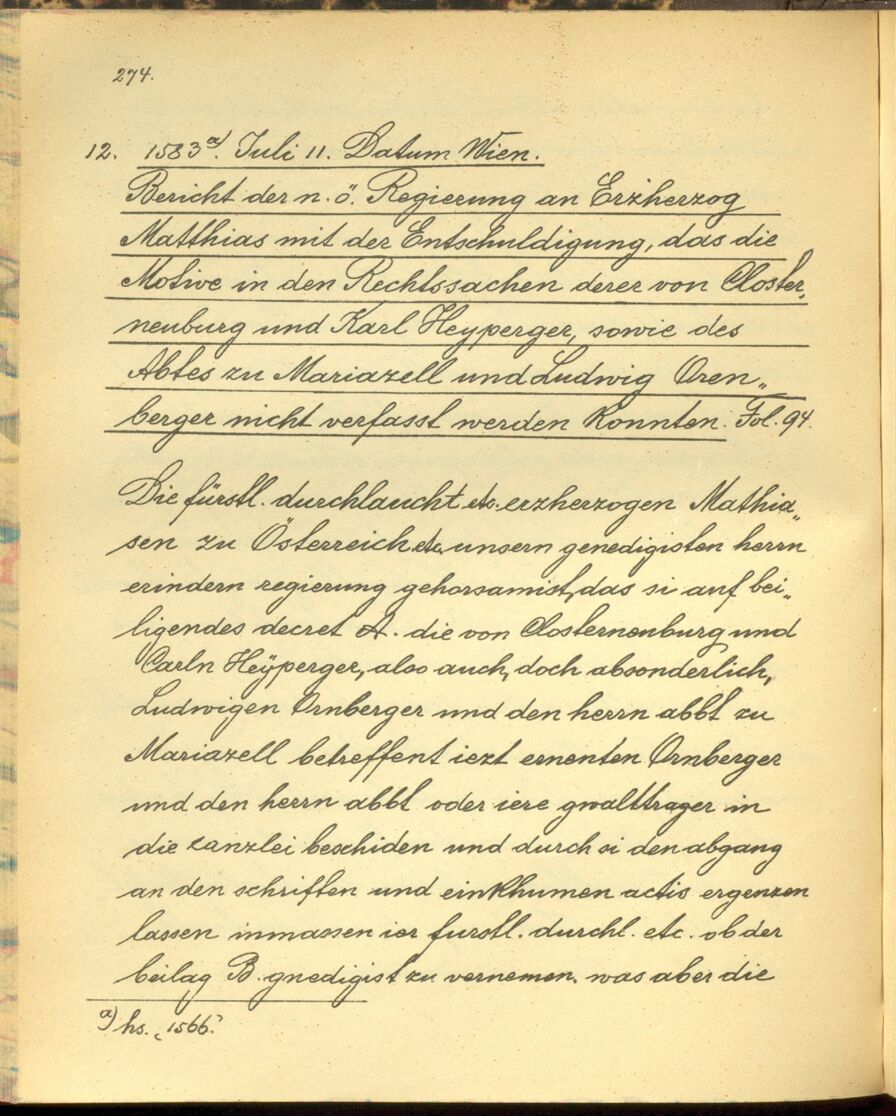 274.
12. 1583ᵃ⁾. Juli 11. Datum Wien.
Bericht der n. ö. Regierung an Erzherzog
Matthias mit der Entschuldigung, das die
Motive in den Rechtssachen derer von Closter„
neuburg und Karl Heyperger, sowie des
Abtes zu Mariazell und Ludwig Oren„
berger nicht verfasst werden konnten. Fol. 94.
Die fürstl. durchlaucht etc. erzherzogen Mathia„
sen zu Österreich etc. unsern genedigisten herrn
erindern regierung gehorsamist, das si auf bei„
ligendes decret A. die von Closterneuburg und
Carln Heÿperger, also auch, doch absonderlich,
Ludwigen Ornberger und den herrn abbt zu
Mariazell betreffent iezt ernenten Ornberger
und den herrn abbt oder iere gwalttrager in
die canzlei beschiden und durch si den abgang
an den schriften und einkhumen actis ergenzen
lassen inmassen ier furstl. durchl. etc. ob der
beilag B. gnedigist zu vernemen. was aber die
a) hs. „1566."